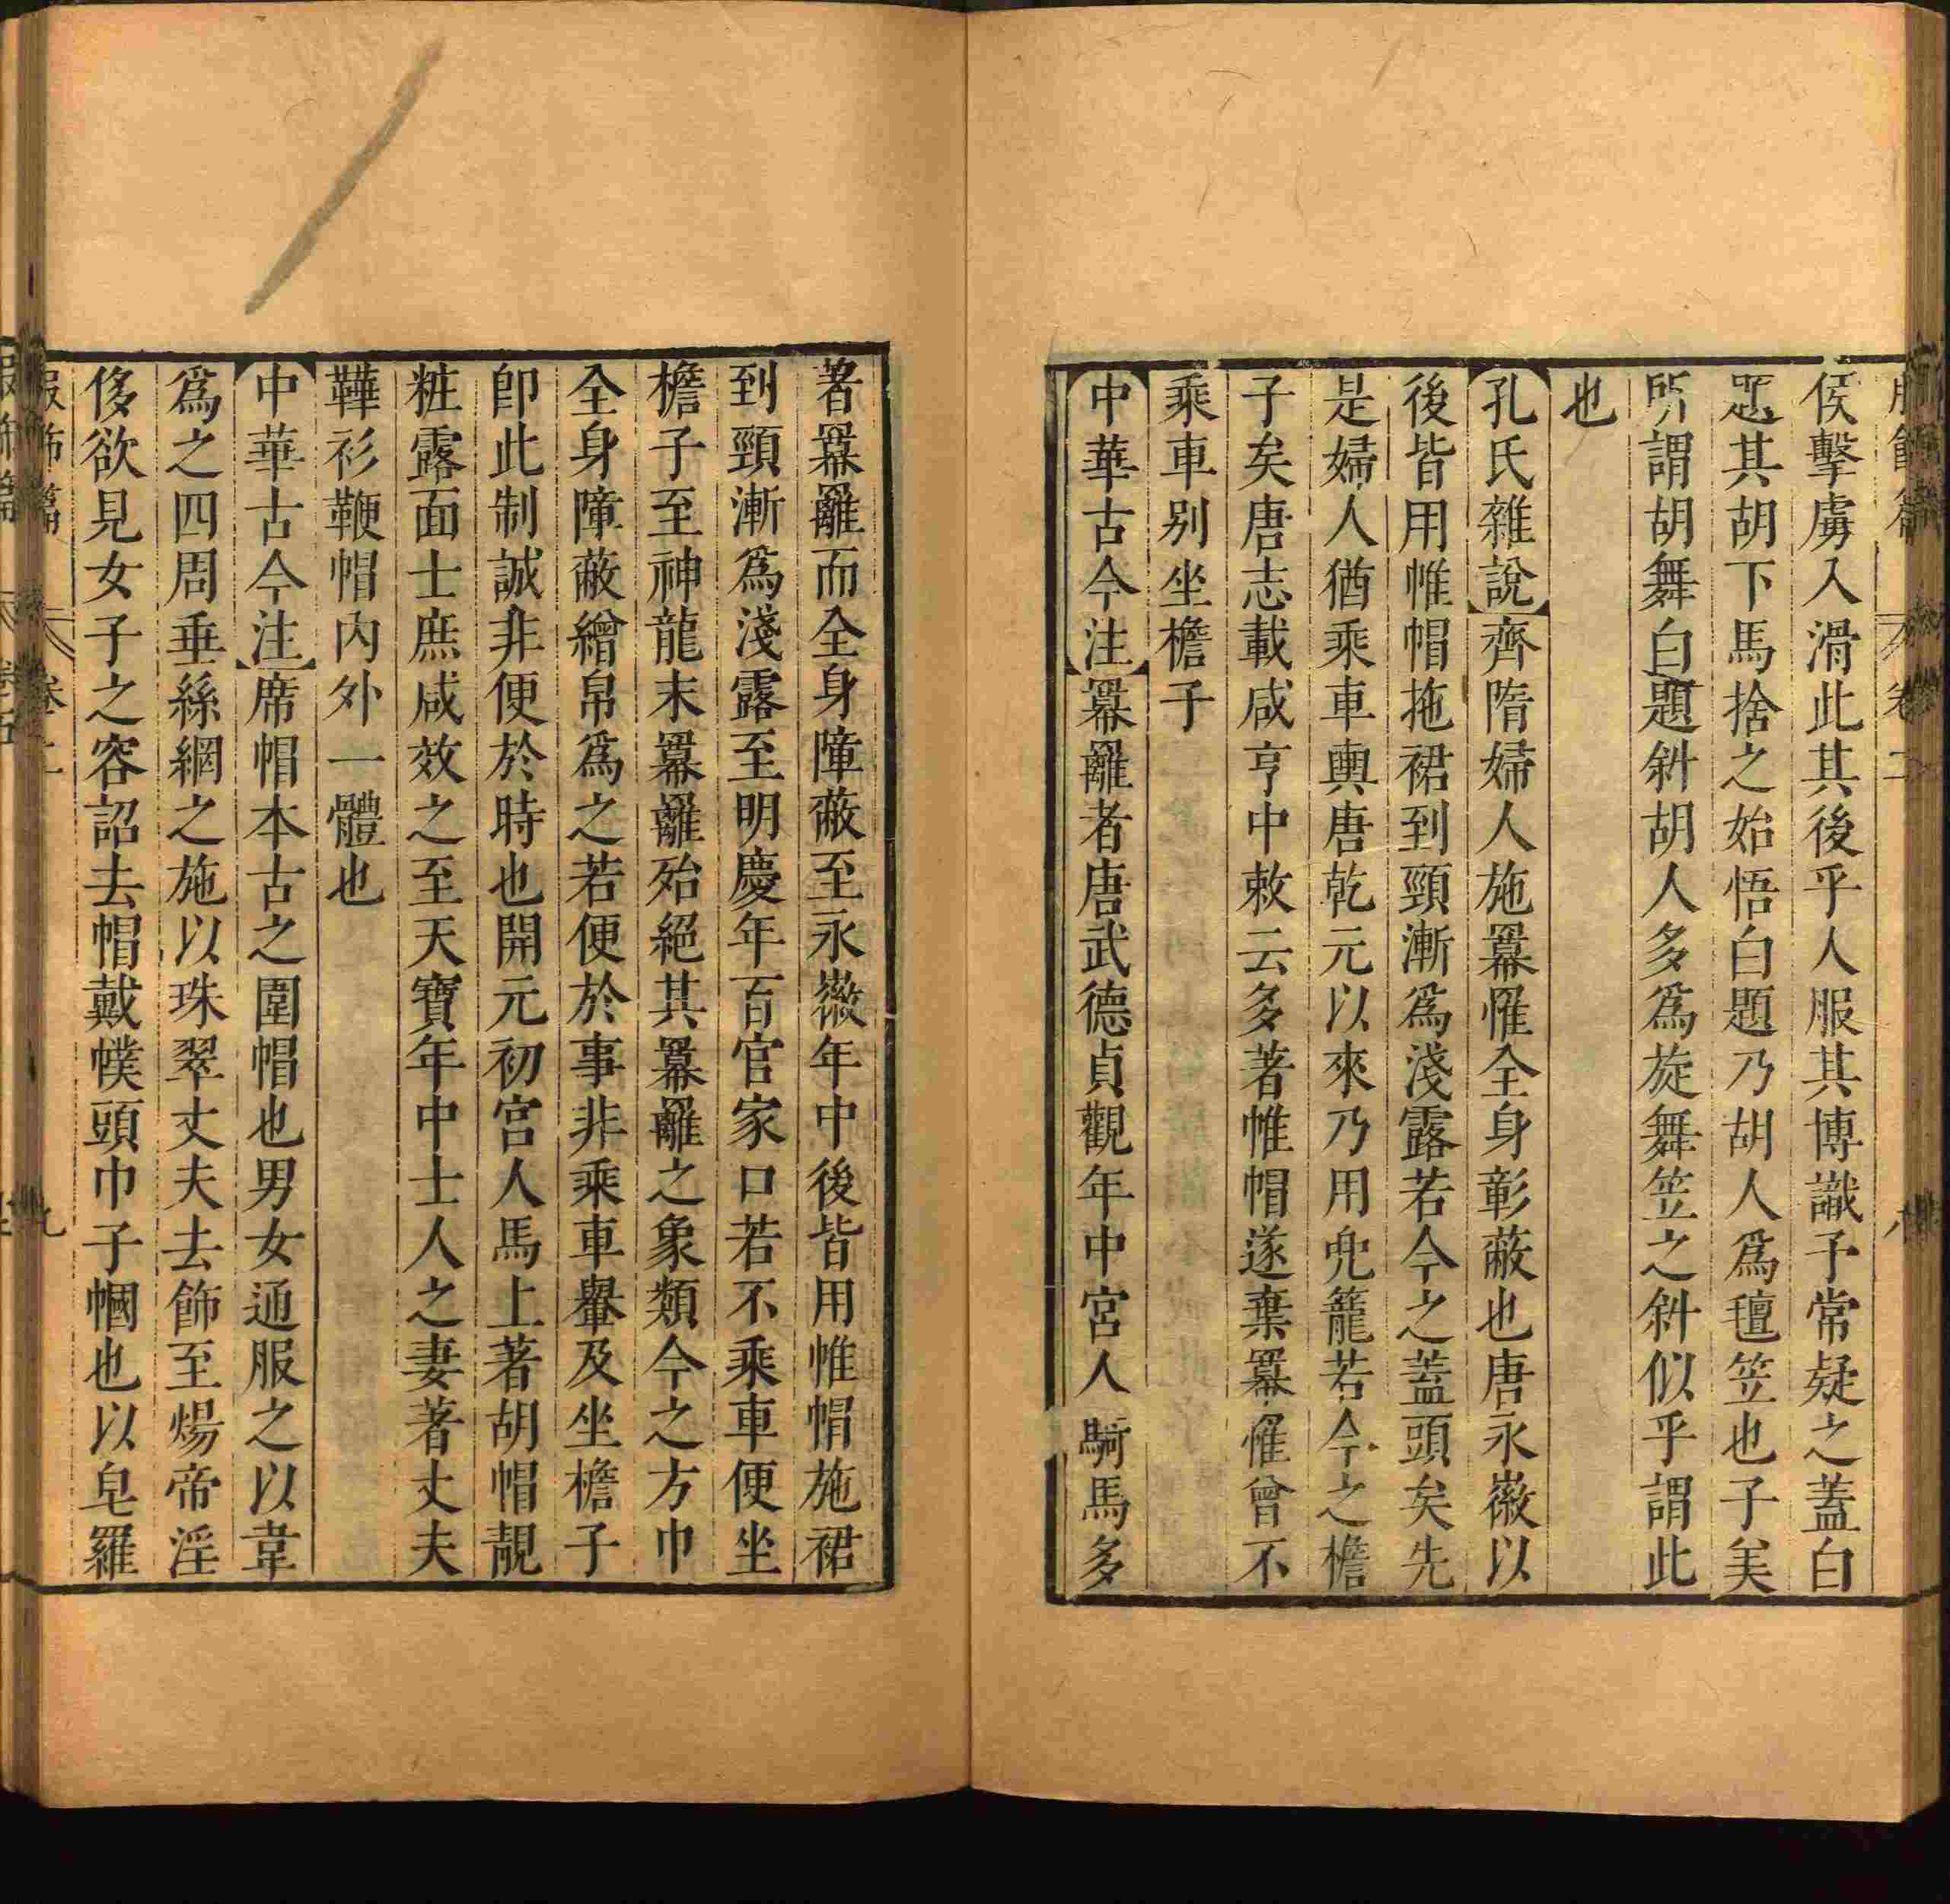 侯擊虜入滑此其後乎人服其博識予常疑之蓋白
題其胡下馬捨之始悟白題乃胡人爲氊笠也子美
所謂胡舞白題斜胡人多爲旋舞笠之斜似乎謂此
也
孔氏雜說齊隋婦人施羃䍦全身彰蔽也唐永徽以
後皆用帷帽拖裙到頸漸爲淺露若今之蓋頭矣先
是婦人猶乘車輿唐乾元以來乃用兜籠若今之檐
子矣唐志載咸亨中敕云多著帷帽遂棄羃䍦曾不
乘車别坐檐子
中華古今注羃䍦者唐武德貞觀年中宮人騎馬多
著羃䍦而全身障蔽至永徽年中後皆用帷帽施裙
到頸漸爲淺露至明慶年百官家口若不乘車便坐
檐子至神龍末羃䍦殆絕其羃䍦之象類今之方巾
全身障蔽繒帛爲之若便於事非乘車轝及坐檐子
卽此制誠非便於時也開元初宮人馬上著胡帽靚
粧露面士庶咸效之至天寶年中士人之妻著丈夫
鞾衫鞭帽內外一體也
中華古今注席帽本古之圍帽也男女通服之以韋
爲之四周垂絲網之施以珠翠丈夫去飾至煬帝淫
侈欲見女子之容詔去帽戴幞頭巾子幗也以皂羅
服飾篇 卷二 九